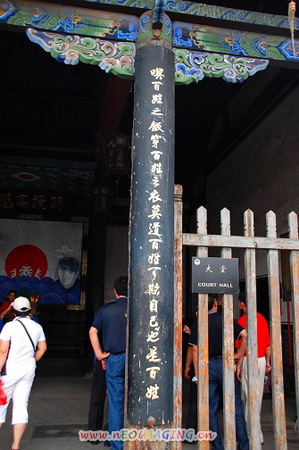 喫百姓之飯穿百姓之衣莫道百姓可欺自己也是百姓
大堂
COURT HALL
www.nEOIMAGING.cn